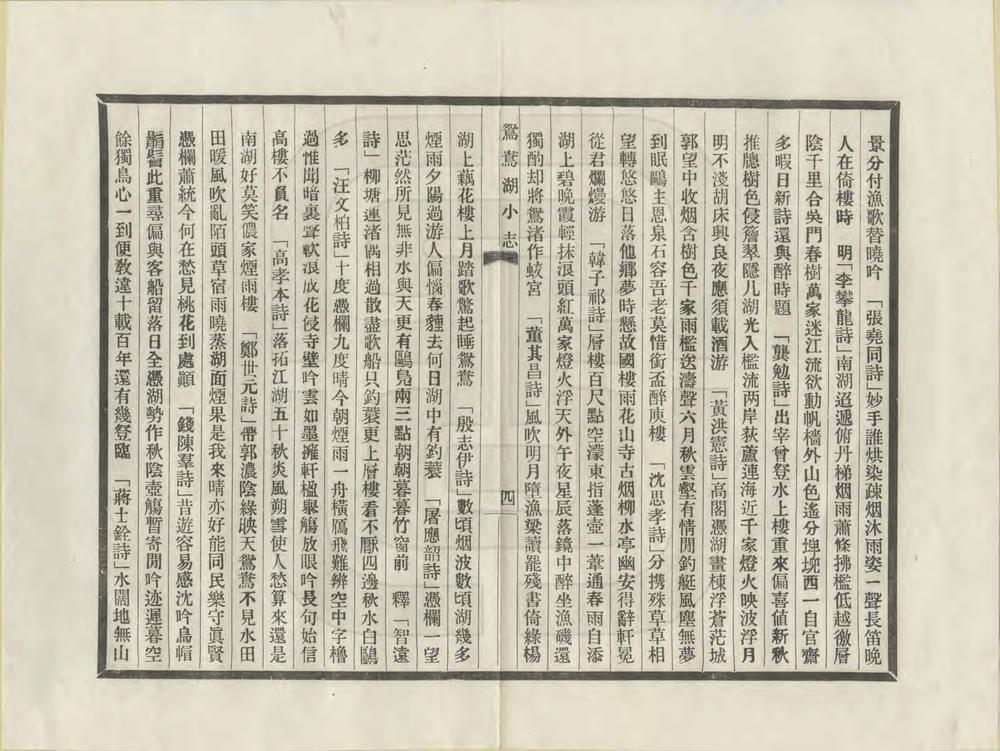 景分付漁歌替曉吟　「張堯同詩」妙手誰烘染疎烟沐雨姿一聲長笛晚
人在倚樓時　明「李攀龍詩」南湖迢遞俯丹梯烟雨蕭條拂檻低越徼層
陰千里合吳門春樹萬家迷江流欲動帆檣外山色遙分埤堄西一自官齋
多暇日新詩還與醉時題　「龔勉詩」出宰曾登水上樓重來偏喜値新秋
推牕樹色侵簷翠隱几湖光入檻流两岸荻蘆連海近千家燈火映波浮月
明不淺胡床興良夜應須載酒游　「黃洪憲詩」高閣憑湖畫棟浮蒼茫城
郭望中收烟含樹色千家雨檻送濤聲六月秋雲壑有情閒釣艇風塵無夢
到眠鷗主恩泉石容吾老莫惜銜盃醉庾樓　「沈思孝詩」分携殊草草相
望轉悠悠日落他鄉夢時懸故國樓雨花山寺古烟柳水亭幽安得辭軒冕
從君爛熳游　「韓子祁詩」層樓百尺點空濛東指蓬壺一葦通春雨自添
湖上碧晚霞輕抹浪頭紅萬家燈火浮天外午夜星辰落鏡中醉坐漁磯還
獨酌却將鴛渚作蛟宮　「董其昌詩」風吹明月墮漁梁讀罷殘書倚綠楊
鴛鴦湖小志
四
湖上藕花樓上月踏歌驚起睡鴛鴦　「殷志伊詩」數頃烟波數頃湖幾多
煙雨夕陽過游人偏惱春韁去何日湖中有釣蓑　「屠應韶詩」憑欄一望
思茫然所見無非水與天更有鷗鳧兩三點朝朝暮暮竹窗前　釋「智遠
詩」柳塘連渚偶相過散盡歌船只釣蓑更上層樓看不厭四邊秋水白鷗
多　「汪文柏詩」十度憑欄九度晴今朝煙雨一舟橫鴈飛難辨空中字櫓
過惟聞暗裏聲軟浪成花侵寺壁吟雲如墨擁軒楹舉觴放眼吟長句始信
高樓不負名　「高孝本詩」落拓江湖五十秋炎風朔雪使人愁算來還是
南湖好莫笑儂家煙雨樓　「鄭世元詩」帶郭濃陰綠映天鴛鴦不見水田
田暖風吹亂陌頭草宿雨曉蒸湖面煙果是我來晴亦好能同民樂守眞賢
憑欄蕭統今何在愁見桃花到處顚　「錢陳羣詩」昔遊容易感沈吟烏帽
鬅鬙此重尋偏與客船留落日全憑湖勢作秋陰壺觴暫寄閒吟迹遲暮空
餘獨鳥心一到便敎違十載百年還有幾登臨　「蔣士銓詩」水闊地無山